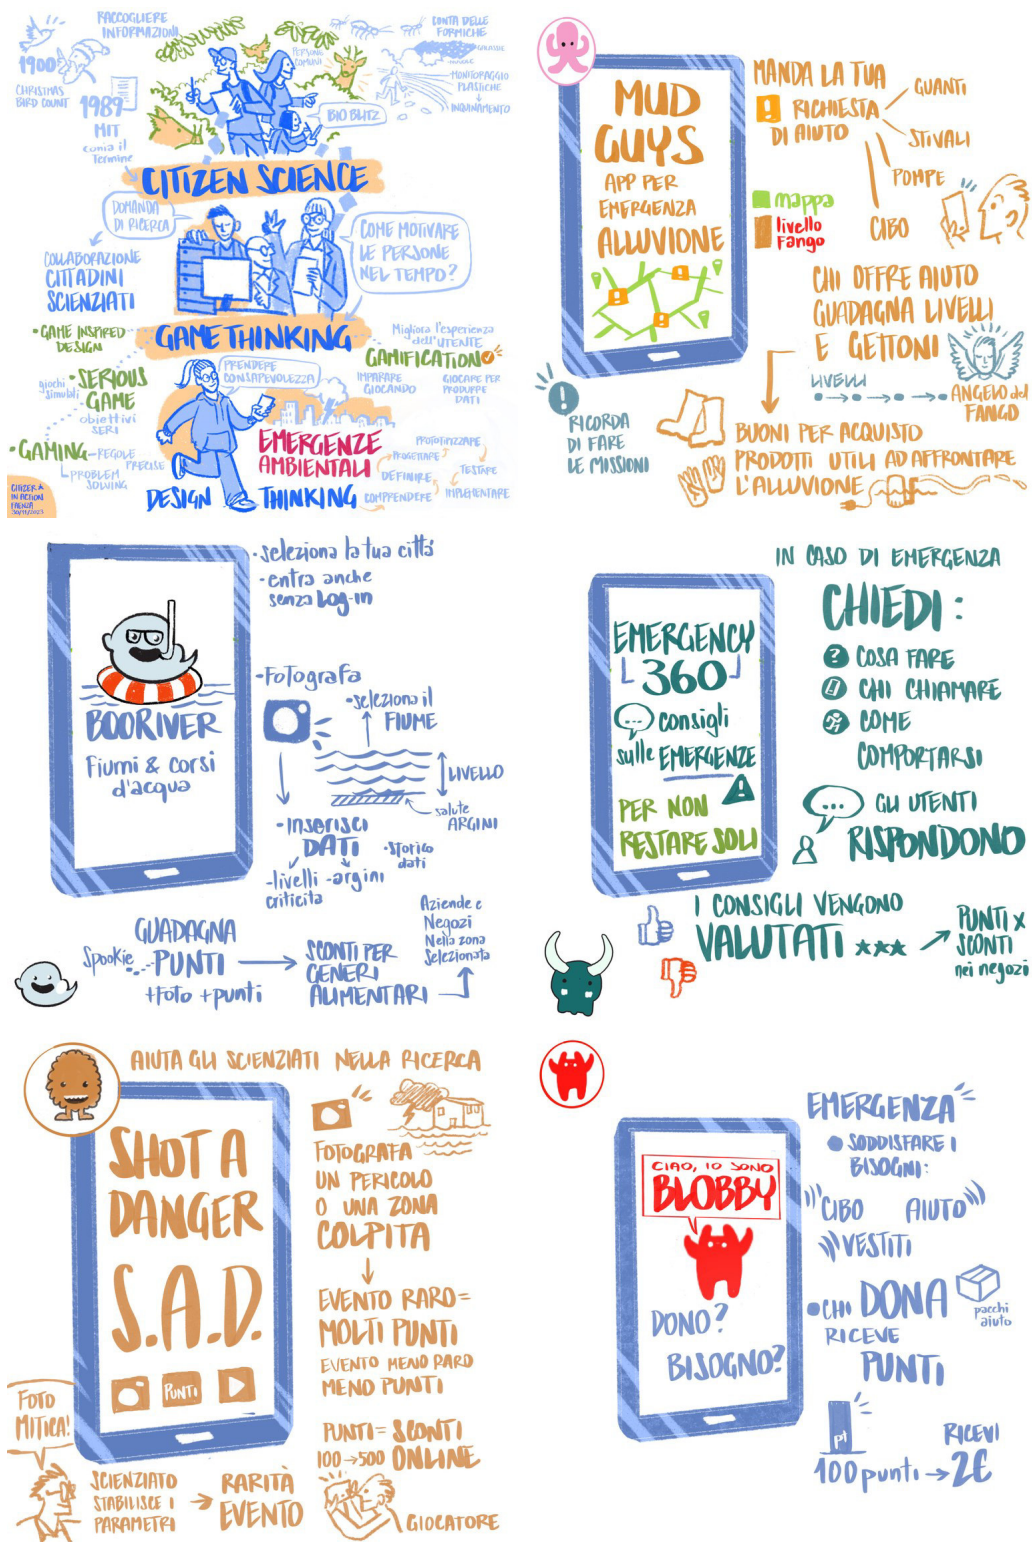 RACCOGLIERE
INFORMAZIONI
1900
CHRISTMAS
BIRD COUNT
1989
MIT
conia il
Termine
PERSONE
COMUNI
BIO BLITZ
CONTA DELLE
FORMICHE
MONITORAGGIO
PLASTICHE
INQUINAMENTO
CITIZEN SCIENCE
DOMANDA
DI RICERCA
COLLABORAZIONE
CITTADINI
SCIENZIATI
COME MOTIVARE
LE PERSONE
NEL TEMPO?
GAME THINKING
• GAME INSPIRED
DESIGN
giochi
simulati
• SERIOUS
GAME
obiettivi
SERI
• GAMING
- REGOLE
PRECISE
PROBLEM
SOLVING
Migliora l'esperienza
dell'UTENTE
GAMIFICATION
IMPARARE
GIOCANDO
GIOCARE PER
PRODURRE
DATI
PRENDERE
CONSAPEVOLEZZA
EMERGENZE
AMBIENTALI
DESIGN THINKING
COMPRENDERE
DEFINIRE
PROGETTARE
PROTOTIPIZZARE
TESTARE
IMPLEMENTARE
CITIZER
IN ACTION
FAENZA
30/11/2023
MUD
GUYS
APP PER
EMERGENZA
ALLUVIONE
MANDA LA TUA
! RICHIESTA
DI AIUTO
GUANTI
STIVALI
POMPE
CIBO
mappa
livello
Fango
CHI OFFRE AIUTO
GUADAGNA LIVELLI
E GETTONI
LIVELLI
ANGELO del
FANGO
!
RICORDA
DI FARE
LE MISSIONI
BUONI PER ACQUISTO
PRODOTTI UTILI AD AFFRONTARE
L'ALLUVIONE
BOORIVER
Fiumi & corsi
d'acqua
• seleziona la tua città
• entra anche
senza Log-in
• Fotografa
• seleziona il
FIUME
LIVELLO
salute
ARGINI
• Inserisci
DATI
• storico
dati
- livelli
criticità
- argini
Spookie...
GUADAGNA
PUNTI
+ foto + punti
SCONTI PER
GENERI
ALIMENTARI
Aziende e
Negozi
Nella zona
Selezionata
EMERGENCY
360
consigli
sulle EMERGENZE
PER NON
RESTARE SOLI
IN CASO DI EMERGENZA
CHIEDI :
? COSA FARE
! CHI CHIAMARE
COME
COMPORTARSI
GLI UTENTI
RISPONDONO
I CONSIGLI VENGONO
VALUTATI ★★★
PUNTI X
SCONTI
nei negozi
AIUTA GLI SCIENZIATI NELLA RICERCA
SHOT A
DANGER
S.A.D.
PUNTI
FOTOGRAFA
UN PERICOLO
O UNA ZONA
COLPITA
EVENTO RARO =
MOLTI PUNTI
EVENTO MENO RARO
MENO PUNTI
PUNTI = SCONTI
100 → 500 ONLINE
FOTO
MITICA!
SCIENZIATO
STABILISCE I
PARAMETRI
RARITÀ
EVENTO
GIOCATORE
CIAO, IO SONO
BLOBBY
DONO?
BISOGNO?
EMERGENZA
• SODDISFARE I
BISOGNI:
CIBO
AIUTO
VESTITI
• CHI DONA
RICEVE
PUNTI
pacchi
aiuto
pt
100 punti → RICEVI
2€